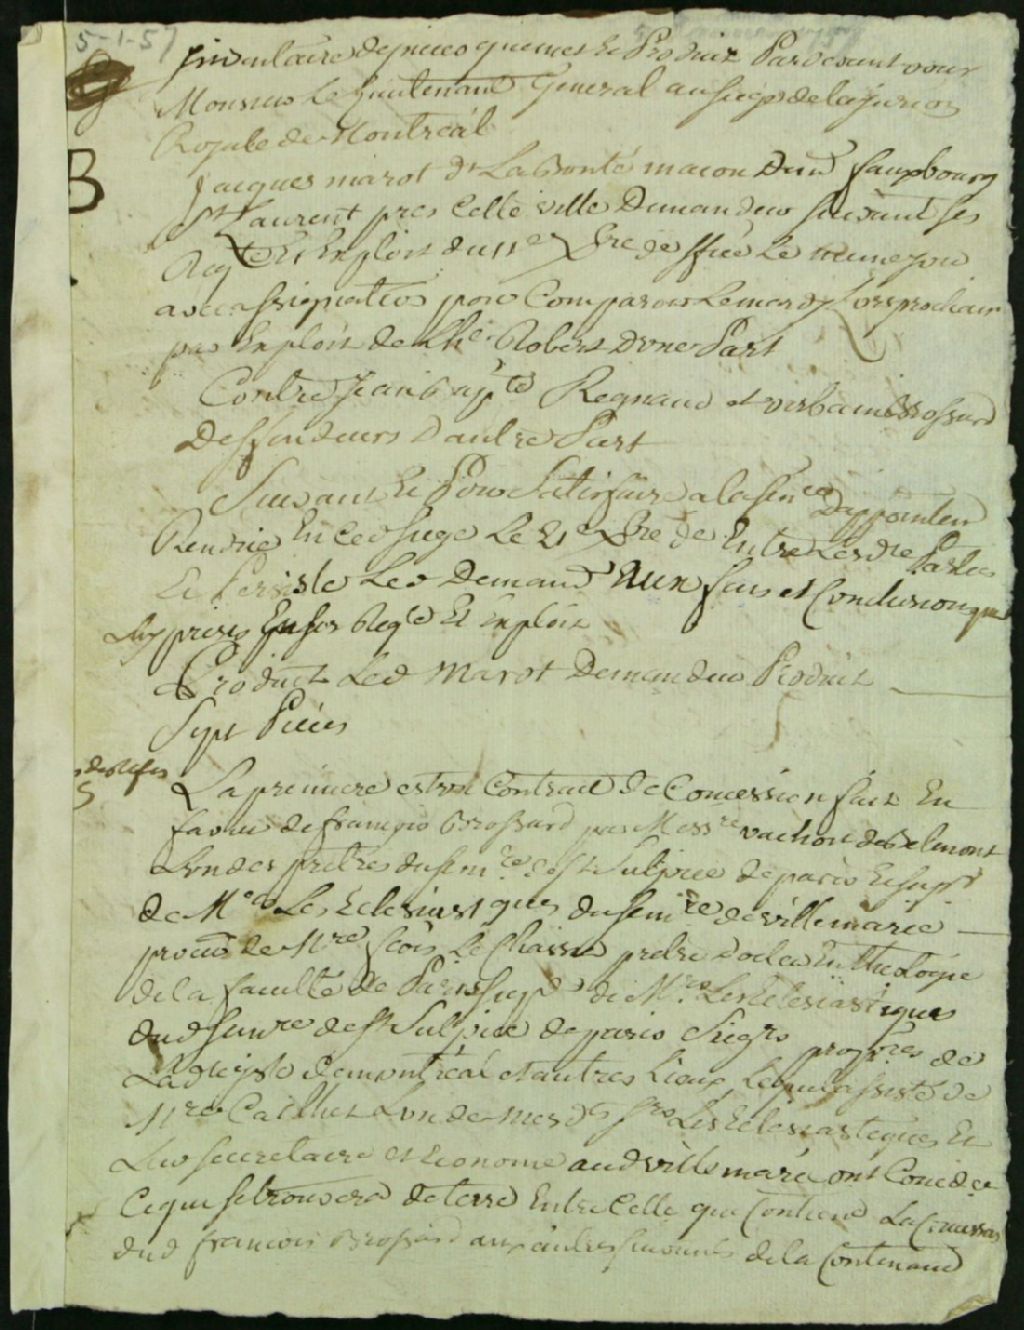 5-1-57
Inventaire de pieces que met Et Produit Pardevant vous
Monsieur Le Lieutenant General au siege de la jurion
Royalle de Montreal
B
Jacques marot dt Labonté macon Dud faupbourg
St Laurent pres Cette ville Demandeur suivant ses
Reqte Et Exploit du 11e Xbre de
avec assignation pour Comparoir Le mardy Lors prochain
par Exploit de Robert D'vne Part
Contre Jean bapte Regnaud et vrbain Brossard
Deffendeurs D'autre Part
Suivant Et Pour Satisfaire a la Sence D'appointem
Rendue En Ced siege Le 21e Xbre de Entre Lesdtes Parties
Et Persiste Led Demand Aux fins et Conclusions que
prises En ses Reqte Et Exploit
Produit Led Marot Demandeur Produit
Sept Pieces
La premiere est vn Contract De Concession fait En
faveur de françois Brossard par Messre vachon de Belmont
L'vn des pretres du semre de St Sulpice de paris Et supr
de Mrs Les Eclesiastiques du semre de villemarie
procur de Mre Le Chassi pretre Docteur En Theologie
de la faculté de Paris supr de Mrs Les Eclesiastiques
dud semre de St Sulpice de paris Siegrs propres de
Montreal et autres Lieux, Lequel assisté de
Mre Caillet L'vn de mesds Srs Les Eclesiastiques Et
Leur secretaire et Econome aud villemarie ont Concedé
Ce qui se trouvera de terre Entre Celle que Contient La Concession
dud francois Brossard aux de la Contenant